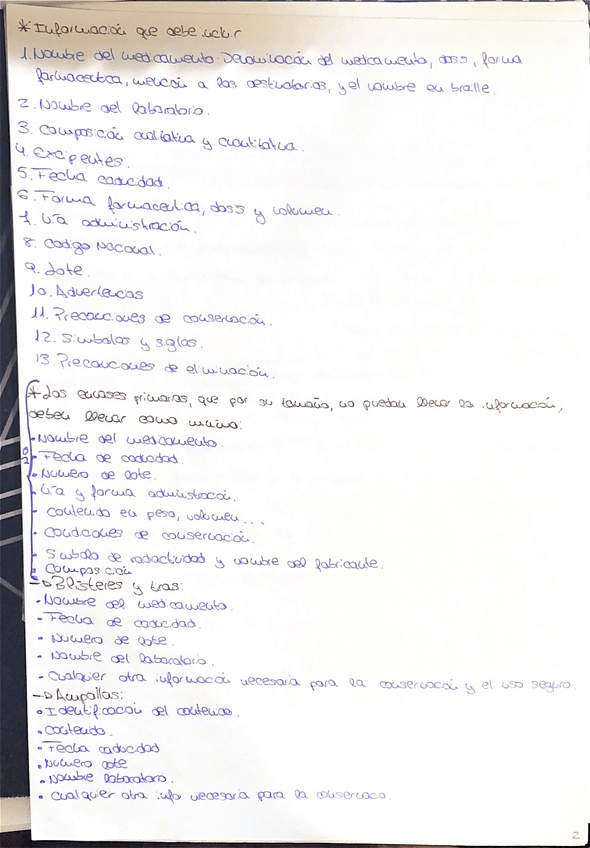 * Información que debe incluir
1. Nombre del medicamento: Denominación del medicamento, dosis, forma
farmaceutica, mención a los destinatarios, y el nombre en braile.
2. Nombre del laboratorio.
3. Composición cualitativa y cuantitativa.
4. Excipientes.
5. Fecha caducidad.
6. Forma farmaceutica, dosis y volumen.
7. Vía administración.
8. Codigo Nacional.
9. Lote.
10. Advertencias
11. Precauciones de conservación.
12. Simbolos y siglas.
13. Precauciones de eliminación.
* Los envases primarios, que por su tamaño, no puedan llevar la información,
deben llevar como minimo:
- Nombre del medicamento.
- Fecha de caducidad.
- Numero de lote.
- Vía y forma administración.
- Contenido en peso, volumen...
- Condiciones de conservación.
- Simbolo de radactividad y nombre del fabricante.
- Composición
→ Blisteres y tiras:
• Nombre del medicamento.
• Fecha de caducidad.
• Numero de lote.
• Nombre del laboratorio.
• Cualquier otra información necesaria para la conservación y el uso seguro.
→ Ampollas:
• Identificación del contenido.
• Contenido.
• Fecha caducidad
• Numero lote
• Nombre laboratorio.
• Cualquier otra info necesaria para la conservaco.
2